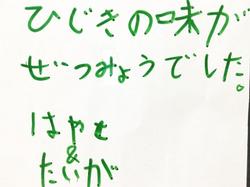 ひじきの味が
ぜつみょうでした。
はやせ
&
たいが